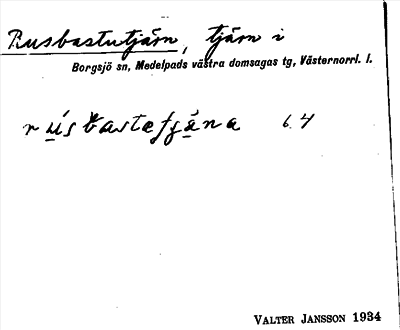 Rusbastutjärn, tjärn i
Borgsjö sn, Medelpads västra domsagas tg, Västernorrl. l.
64
VALTER JANSSON 1934